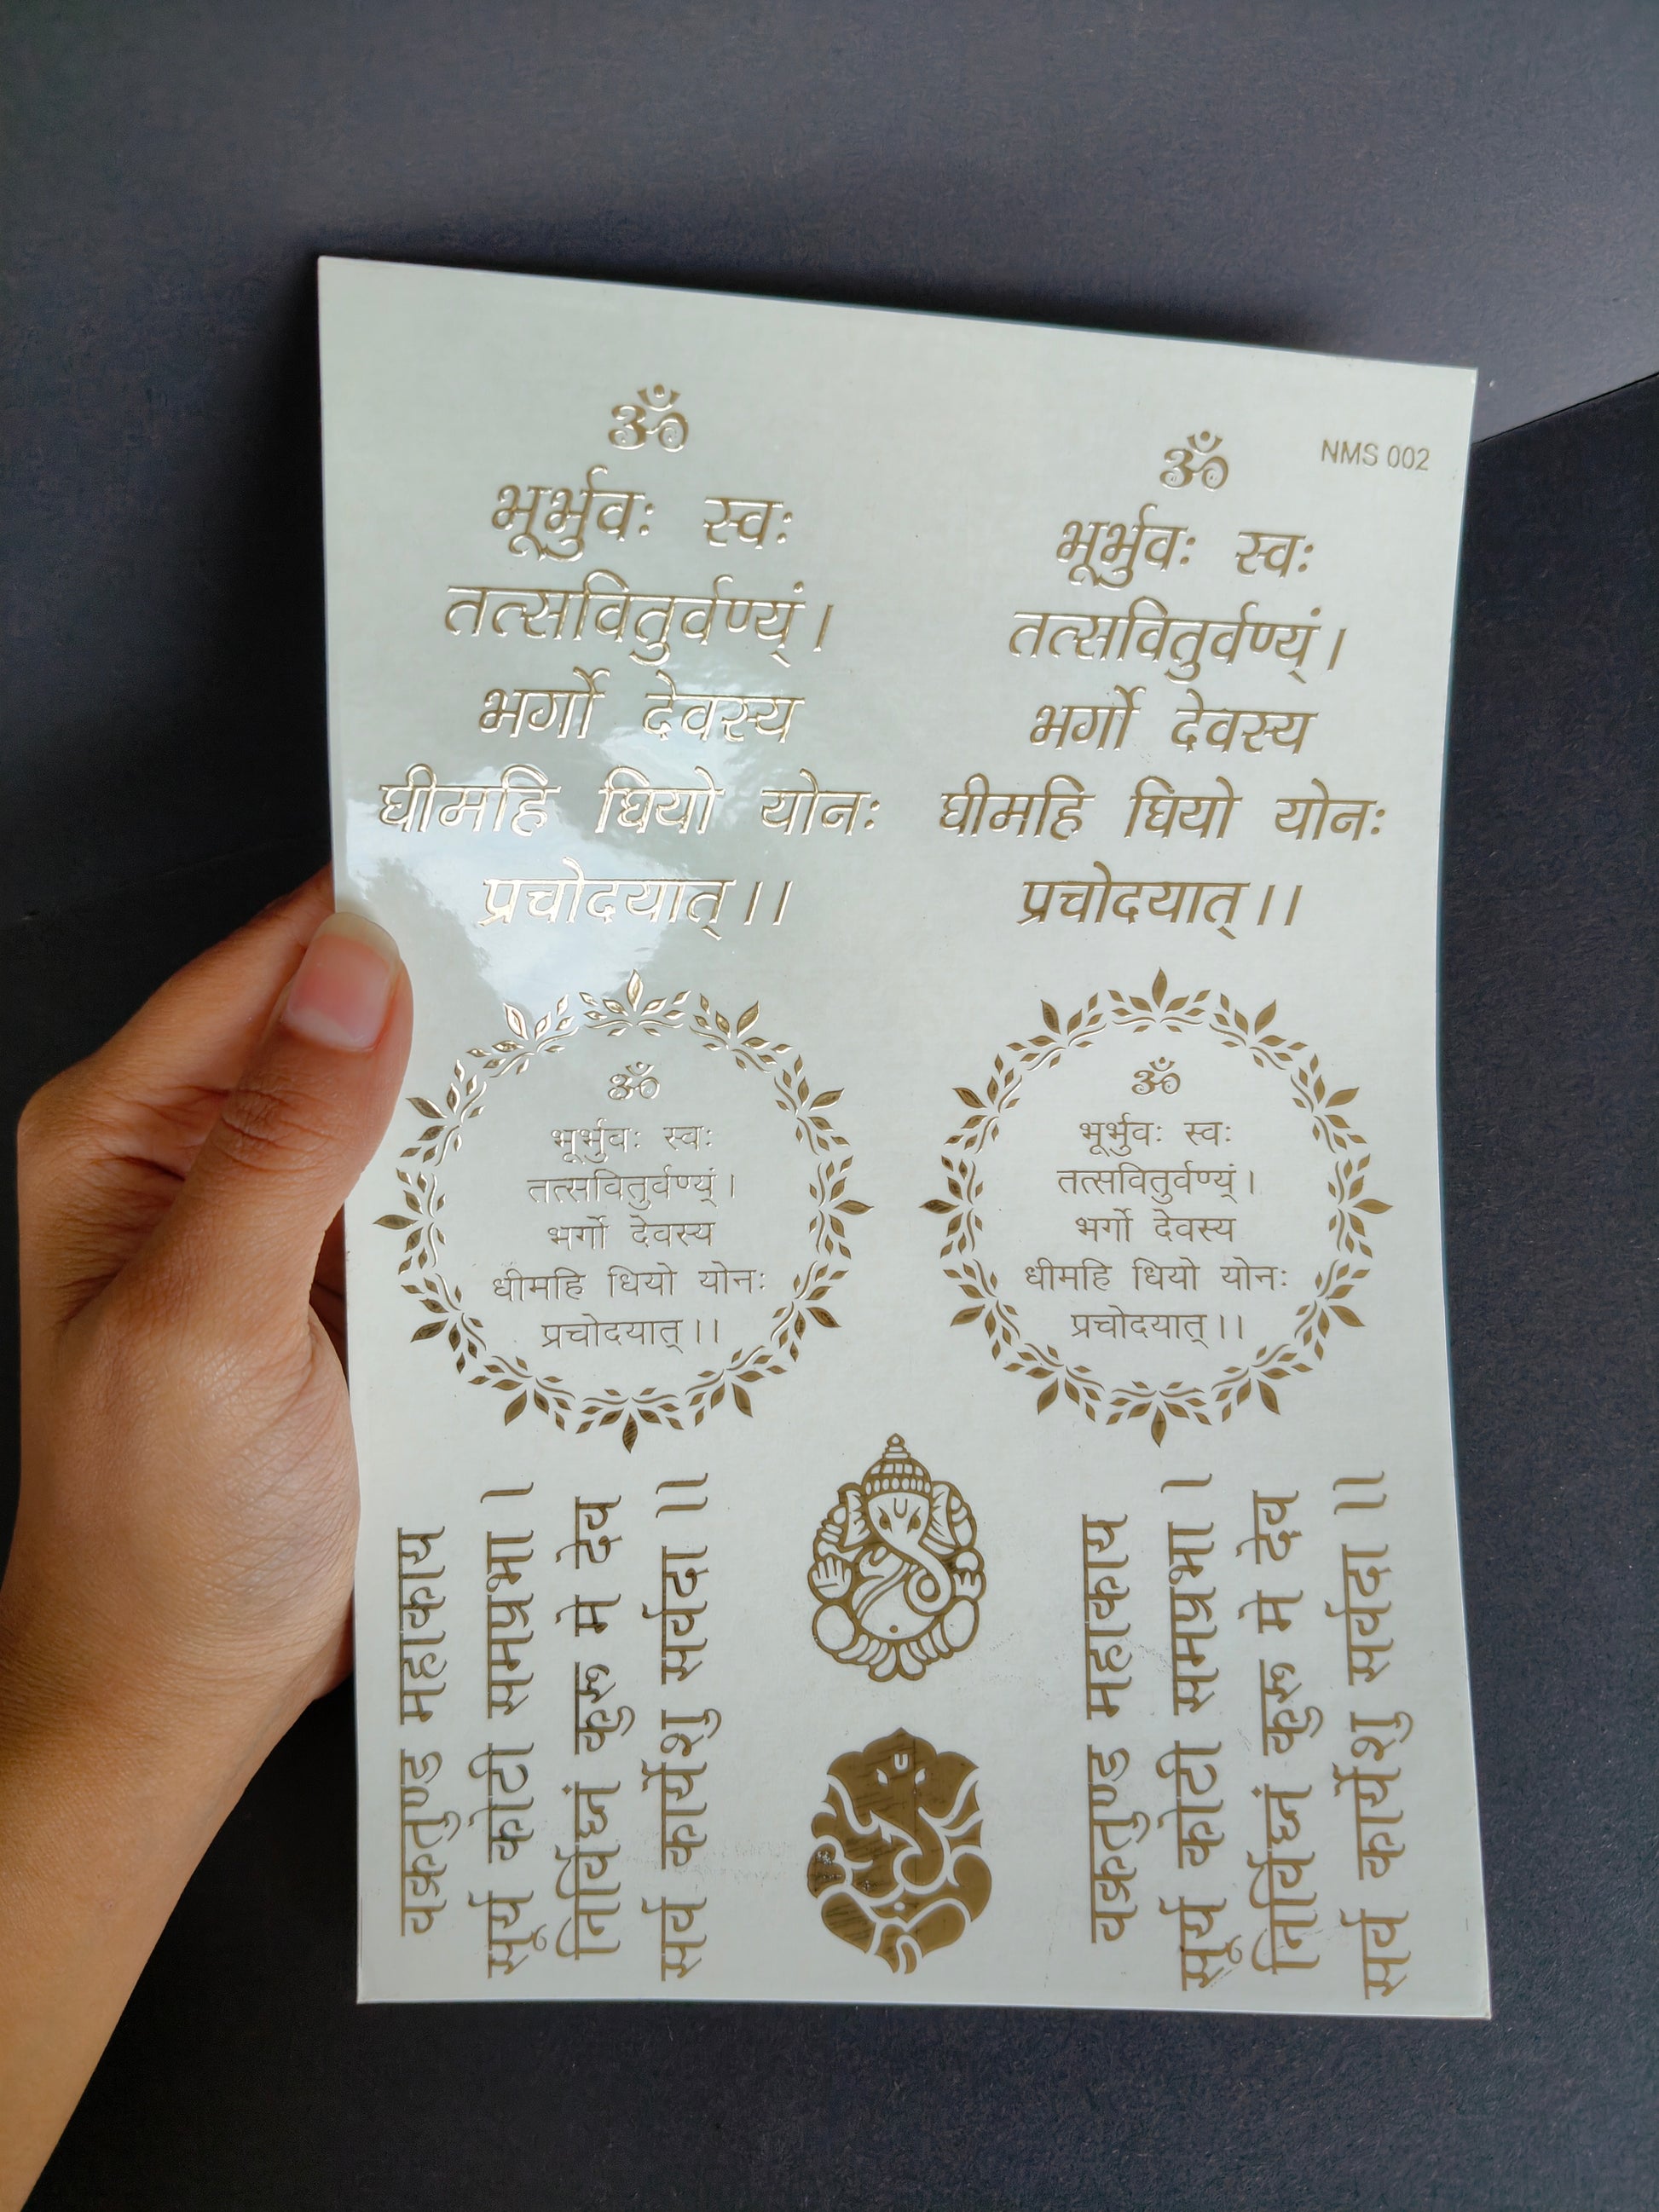 ॐ
भूर्भुवः स्वः
तत्सवितुर्वण्यं्।
भर्गो देवस्य
घीमहि घियो योनः
प्रचोदयात्।।
ॐ
भूर्भुवः स्वः
तत्सवितुर्वण्यं्।
भर्गो देवस्य
घीमहि घियो योनः
प्रचोदयात्।।
NMS 002
ॐ
भूर्भुवः स्वः
तत्सवितुर्वण्यं्।
भर्गो देवस्य
धीमहि धियो योनः
प्रचोदयात्।।
ॐ
भूर्भुवः स्वः
तत्सवितुर्वण्यं्।
भर्गो देवस्य
धीमहि धियो योनः
प्रचोदयात्।।
वक्रतुण्ड महाकाय
सूर्य कोटी समप्रभा ।
निर्विघ्नं कुरू मे देव
सर्व कार्येशु सर्वदा ।।
वक्रतुण्ड महाकाय
सूर्य कोटी समप्रभा ।
निर्विघ्नं कुरू मे देव
सर्व कार्येशु सर्वदा ।।